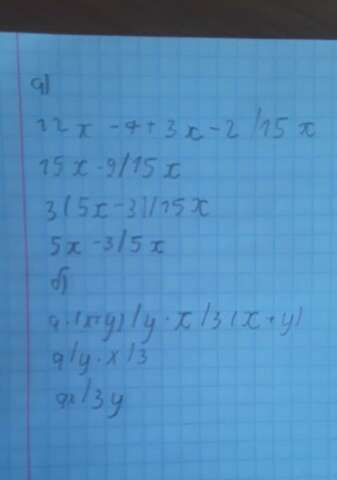 а)
12x - 7 + 3x - 2 / 15x
15x - 9 / 15x
3(5x - 3) / 15x
5x - 3 / 5x
б)
a·(x+y) / y · x / 3(x + y)
a / y · x / 3
ax / 3y